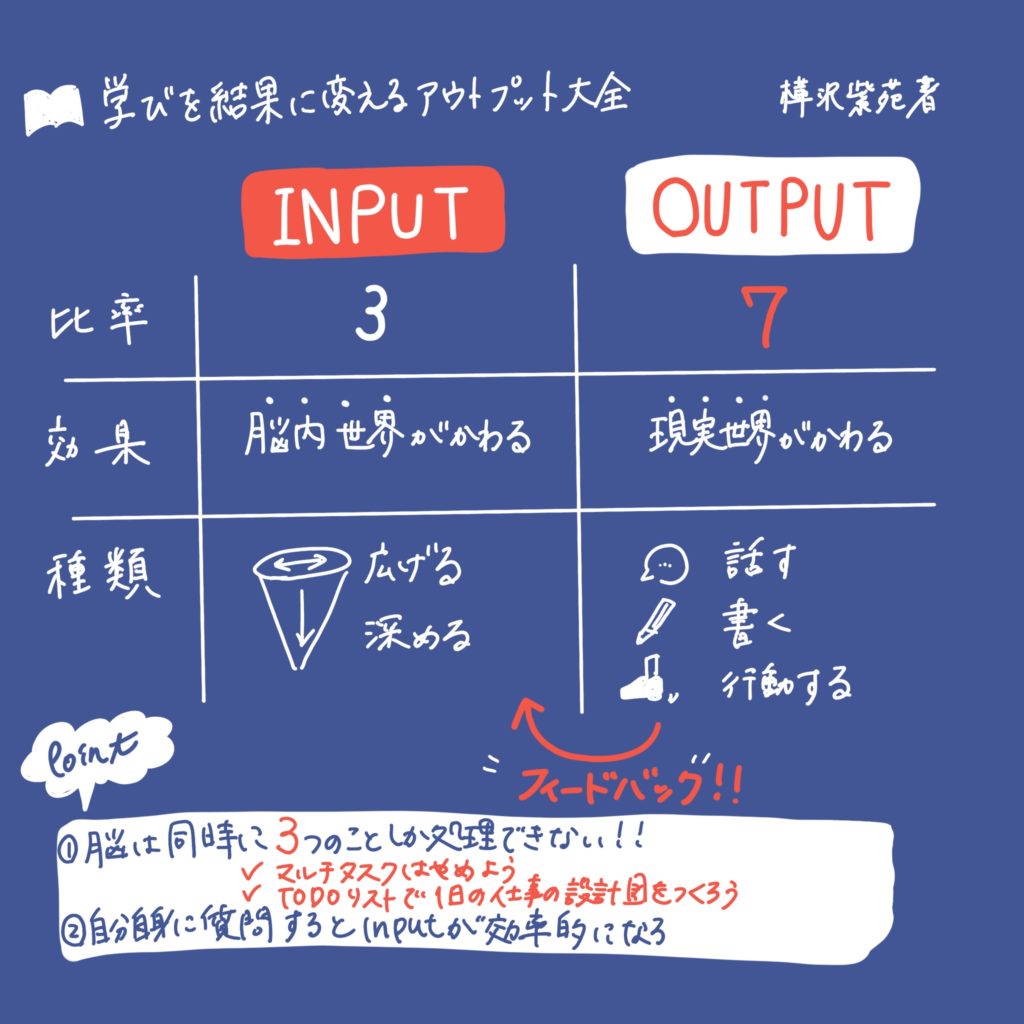 学びを結果に変えるアウトプット大全
樺沢紫苑著
INPUT
OUTPUT
比率
3
7
効果
脳内世界がかわる
現実世界がかわる
種類
広げる
深める
話す
書く
行動する
フィードバック!!
Point
①脳は同時に3つのことしか処理できない!!
✓ マルチタスクはやめよう
✓ TODOリストで1日の仕事の設計図をつくろう
②自分自身に質問するとInputが効率的になる